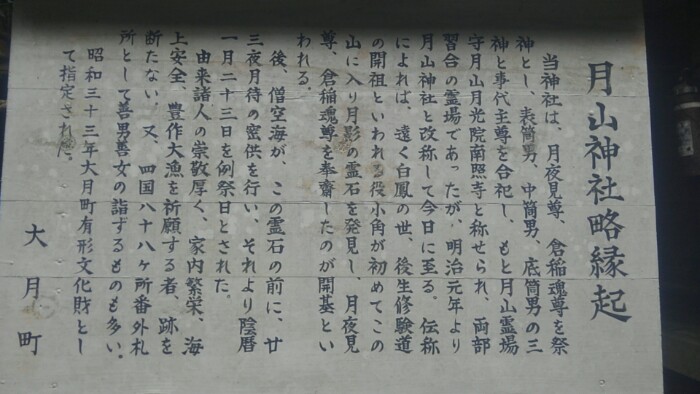 月山神社略縁起
当神社は、月夜見尊、倉稲魂尊を祭
神とし、表筒男、中筒男、底筒男の三
神と事代主尊を合祀し、もと月山霊場
守月山月光院南照寺と称せられ、両部
習合の霊場であったが、明治元年より
月山神社と改称して今日に至る。伝称
によれば、遠く白鳳の世、後生修験道
の開祖といわれる役小角が初めてこの
山に入り月影の霊石を発見し、月夜見
尊、倉稲魂尊を奉斎したのが開基とい
われる。
後、僧空海が、この霊石の前に、廿
三夜月待の密供を行い、それより陰暦
一月二十三日を例祭日とされた。
由来諸人の崇敬厚く、家内繁栄、海
上安全、豊作大漁を祈願する者、跡を
断たない。又、四国八十八ヶ所番外札
所として善男善女の詣ずるものも多い。
昭和三十三年大月町有形文化財とし
て指定された。
大月町